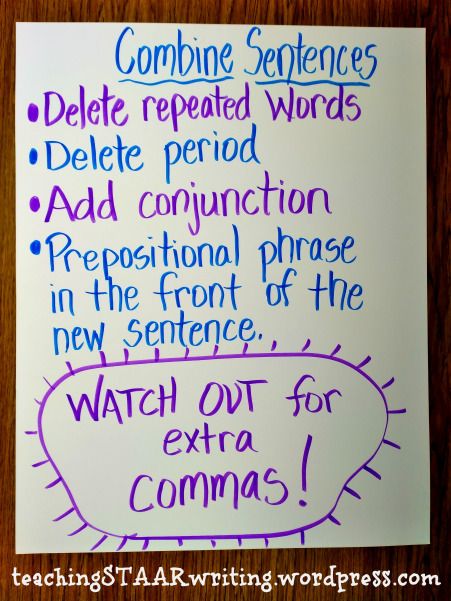 Combine Sentences
• Delete repeated words
• Delete period
• Add conjunction
• Prepositional phrase
in the front of the
new sentence.
WATCH OUT for
extra
commas!
teachingSTAARwriting.wordpress.com